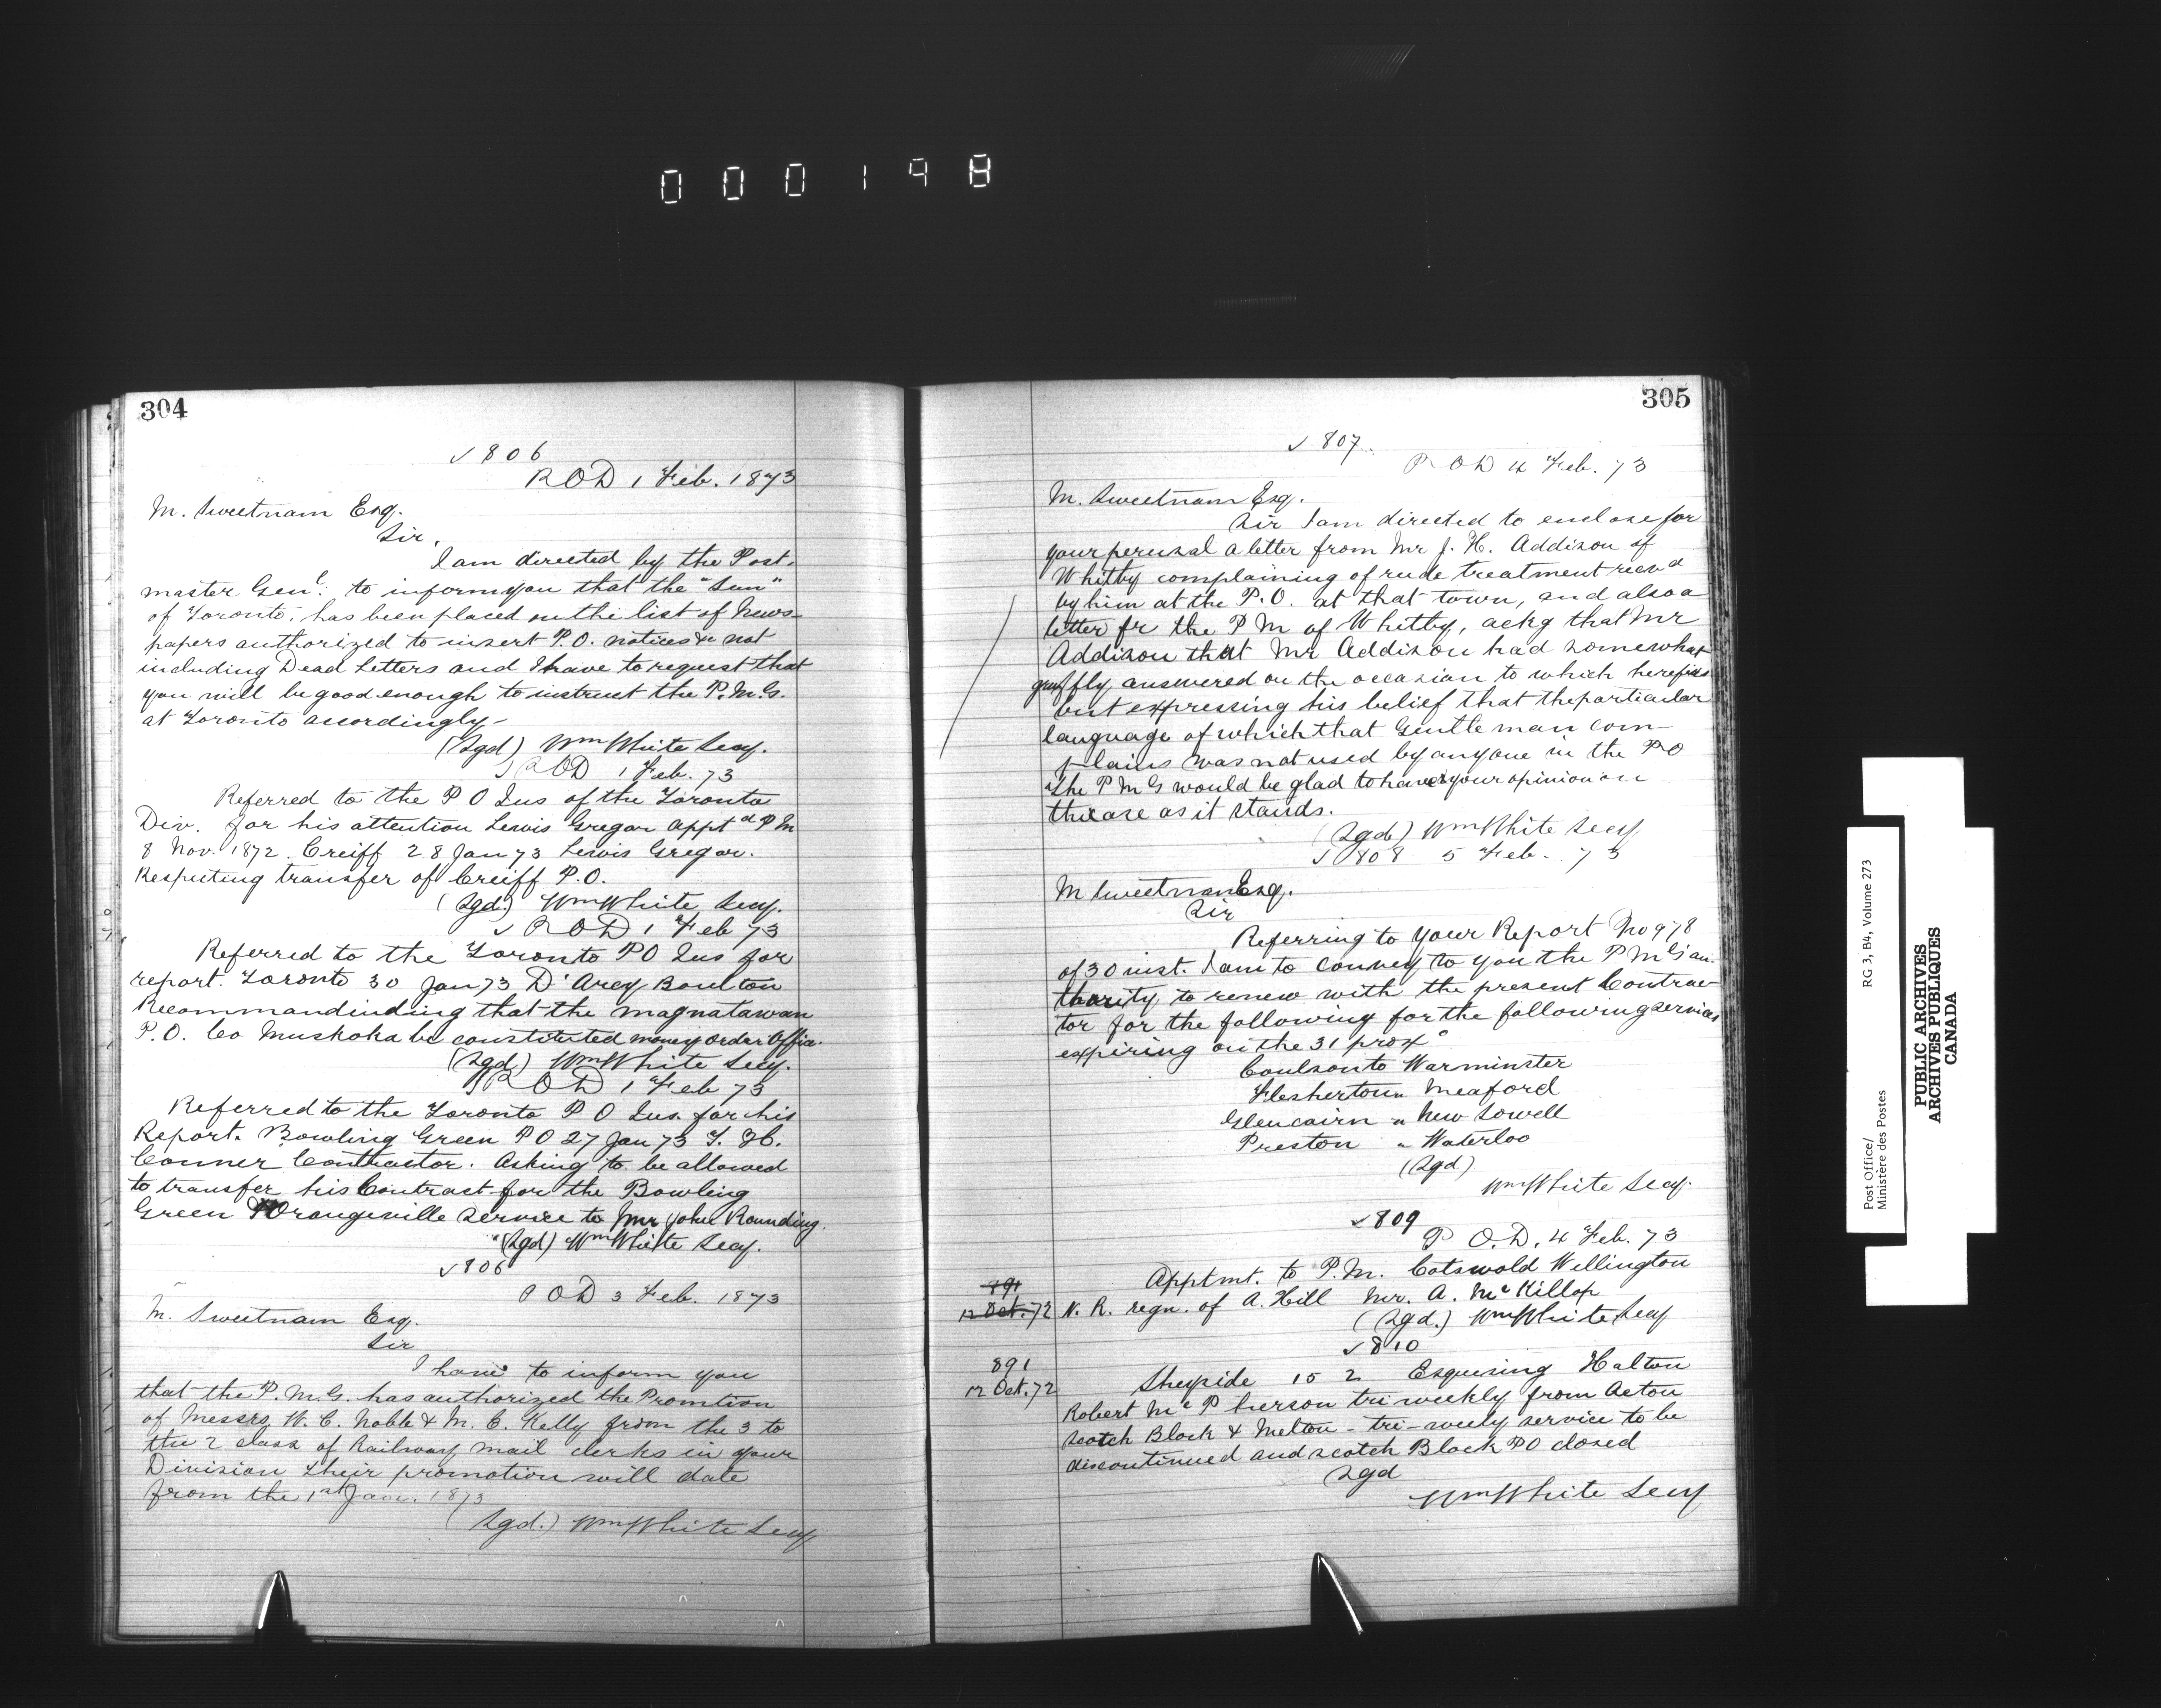 000198
304
√ 806
P O D 1 Feb. 1873
M. Sweetnam Esq.
Sir,
I am directed by the Post-
master Genl. to inform you that the "Sun"
of Toronto, has been placed on the list of News-
papers authorized to insert P.O. notices &c not
including Dead Letters and I have to request that
you will be good enough to instruct the P.M.G.
at Toronto accordingly -
(Sgd) Wm White Secy.
√ P O D 1 Feb. 73
Referred to the P O Ins of the Toronto
Div. for his attention Lewis Gregor apptd P M
8 Nov. 1872. Creiff 28 Jan 73 Lewis Gregor.
Respecting transfer of Creiff P.O.
(Sgd.) Wm White Secy.
√ P O D 1 Feb 73
Referred to the Toronto P O Ins for
report. Toronto 30 Jan 73 D'Arcy Boulton
Recommandinding that the Magnatawan
P.O. Co Muskoka be constituted money order office.
(Sgd) Wm White Secy.
√ P O D 1 Feb 73
Referred to the Toronto P O Ins for his
Report. Bowling Green P O 27 Jan 73 T. H.
Conner Conthactor. Asking to be allowed
to transfer his Contract for the Bowling
Green Orangeville service to Mr John Rounding.
(Sgd) Wm White Secy.
√ 806
P O D 3 Feb. 1873
M. Sweetnam Esq.
Sir
I have to inform you
that the P.M.G. has authorized the Promtion
of Messrs W. C. Noble & M. C. Kelly from the 3 to
the 2 class of Railway Mail clerks in your
Division their promotion will date
from the 1st Jan. 1873
(Sgd.) Wm White Secy
305
√ 807.
P O D 4 Feb. 73
M. Sweetnam Esq.
Sir I am directed to enclose for
your perusal a letter from Mr J. H. Addison of
Whitby complaining of rude treatment recevd
by him at the P.O. at that town, and also a
letter fr the P M of Whitby, ackg that Mr
Addison that Mr Addison had somewhat
gruffly answered on the occasion to which he refers
but expressing his belief that the particular
language of which that Gentleman com-
plains was not used by anyone in the P O
The P M G would be glad to have your opinion on
the case as it stands.
(Sgd) Wm White Secy
√ 808 5 Feb. 73
M Sweetnam Esq.
Sir
Referring to your Report No 978
of 30 inst. I am to convey to you the P M G's au-
thority to renew with the present Contrac-
tor for the following for the following services
expiring on the 31 proxo
Coulson to Warminster
Flesherton " Meaford
Glencairn " New Lowell
Preston " Waterloo
(Sgd)
Wm White Secy.
√ 809
P O. D. 4 Feb. 73
Apptmt. to P.M. Cotswold Wellington
891
12 Oct. 72 N. R. regn. of A. Hill Mr. A. McKillop
(Sgd.) Wm White Secy
√ 810
891
12 Oct. 72
Sheyside 15 2 Esquesing Halton
Robert McPherson tri weekly from Acton
Scotch Block & Melton - tri-weely service to be
discontinued and Scotch Block P O closed
Sgd
Wm White Secy
RG 3, B4, Volume 273
Post Office/
Ministère des Postes
PUBLIC ARCHIVES
ARCHIVES PUBLIQUES
CANADA